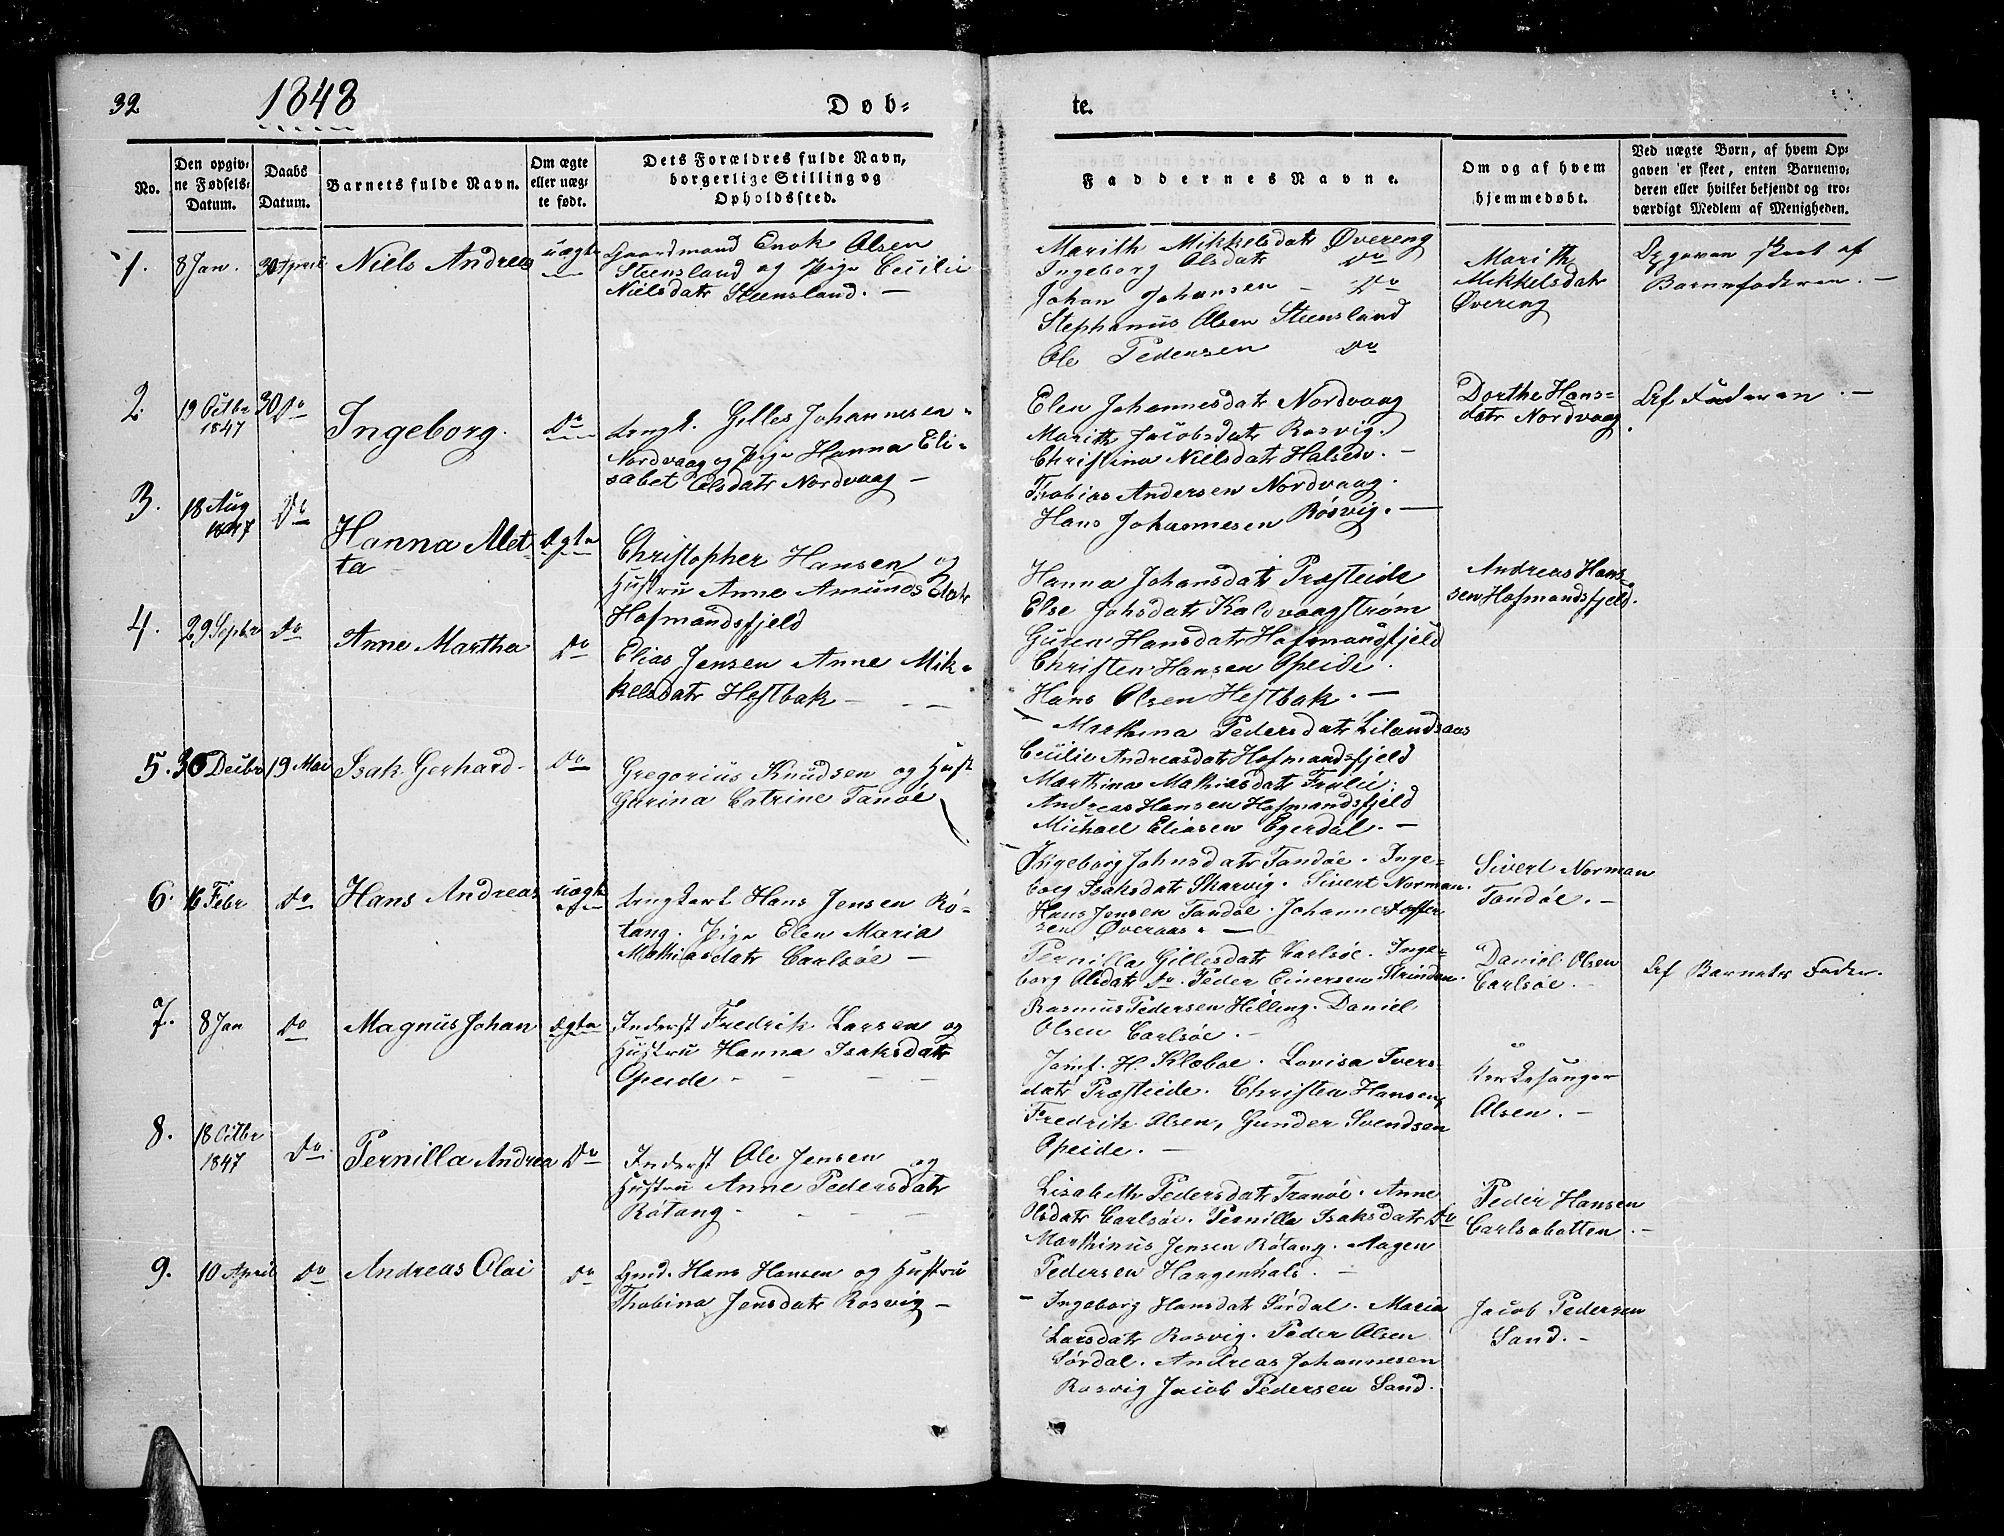 32 1848 Døb-
te.
No.
Den opgiv-
ne Fødsels-
Datum.
Daabs
Datum.
Barnets fulde Navn.
Om ægte
eller uæg-
te født.
Dets Forældres fulde Navn,
borgerlige Stilling og
Opholdssted.
Faddernes Navne.
Om og af hvem
hjemmedøbt.
Ved uægte Børn, af hvem Op-
gaven er skeet, enten Barnemo-
deren eller hvilket bekjendt og tro-
værdigt Medlem af Menigheden.
1. 8 Jan. 30 April Niels Andreas uægte
Gaardmand Enok Olsen
Steensland og Pige Cecilie
Nielsdatr Steensland. —
Marith Mikkelsdatr Øvereng
Ingeborg Olsdatr Do
Johan Johansen - Do
Stephanus Olsen Steensland
Ole Pedersen Do
Marith
Mikkelsdatr
Øvereng
Opgaven skeet af
Barnefaderen. —
2. 19 Octbr 30 Do Ingeborg. Do
1847
Ungk. Gilles Johannesen
Nordvaag og Pige Hanna Eli-
sabet Olsdatr Nordvaag —
Elen Johannesdatr Nordvaag
Marith Jacobsdatr Rosvig.
Christina Nielsdatr Halsen. -
Thobias Andersen Nordvaag.
Hans Johannesen Røsvig. —
Dorthe Hans-
datr Nordvaag.
Af Faderen. —
3. 18 Aug Do
1847
Hanna Met-
ta
ægte
Christopher Hansen og
Hustru Anne Amundsdatr
Hofmandsfjeld
Hanna Johansdatr Præsteide
Else Johsdatr Kaldvaagstrøm
Guren Hansdatr Hofmandsfjeld
Christen Hansen Opeide.
Hans Olsen Hestbak. —
Andreas Han-
sen Hofmandsfjeld.
4. 29 Septbr Do Anne Martha Do
Elias Jensen Anne Mik-
kelsdatr Hestbak — - —
— Marthina Pedersdatr Lilandsaas
Cecilie Andreasdatr Hofmandsfjeld
Marthina Mathiasdatr
Andreas Hansen Hofmandsfjeld
Michael Eliasen Egerdal. —
5. 30 Decbr 19 Mai Isak Gerhard. Do
Gregorius Knudsen og Hust
Gurina Catrine Tanøe
Ingeborg Johnsdatr Tandøe. Inge-
borg Isaksdatr Skarvig. Sivert Norman.
Hans Jensen Tandøe. Johannes
sen Øveraas. —
Sivert Norman
Tandøe. —
6. 16 Febr Do Hans Andreas uægte
Ungkarl Hans Jensen Rø-
tang. Pige Elen Maria
Mathiasdatr Carlsøe —
Pernilla Gillesdatr Carlsøe. Inge-
borg Olsdatr Do. Peder Einersen Strinden.
Rasmus Pedersen Hilling. Daniel
Olsen Carlsøe. —
Daniel Olsen
Carlsøe. —
Af Barnets Fader.
7. 8 Jan Do Magnus Johan ægte
Inderst Fredrik Larsen og
Hustru Hanna Isaksdatr
Opeide - - - -
Jomf. H. Klæboe. Lovisa Ivers-
datr Præsteide. Christen Hansen,
Fredrik Olsen, Gunder Svendsen
Opeide. —
Kirkesanger
Olsen. —
8. 18 Octbr Do Pernilla Andrea Do
1847
Inderst Ole Jensen og
Hustru Anne Pedersdatr
Røtang - - - -
Lisabeth Pedersdatr Tranøe. Anne
Olsdatr Carlsøe. Pernilla Isaksdatr Do
Marthinus Jensen Røtang. Aagen
Pedersen Haagenhals. —
Peder Hansen
Carlsobotten. —
9. 10 April Do Andreas Olai Do
Gmd. Hans Hansen og Hustru
Thobina Jensdatr Rosvig —
— Ingeborg Hansdatr Sørdal. Maria
Larsdatr Rosvig. Peder Olsen
Sørdal. Andreas Johannesen
Rosvig Jacob Pedersen Sand.
Jacob Pedersen
Sand. —